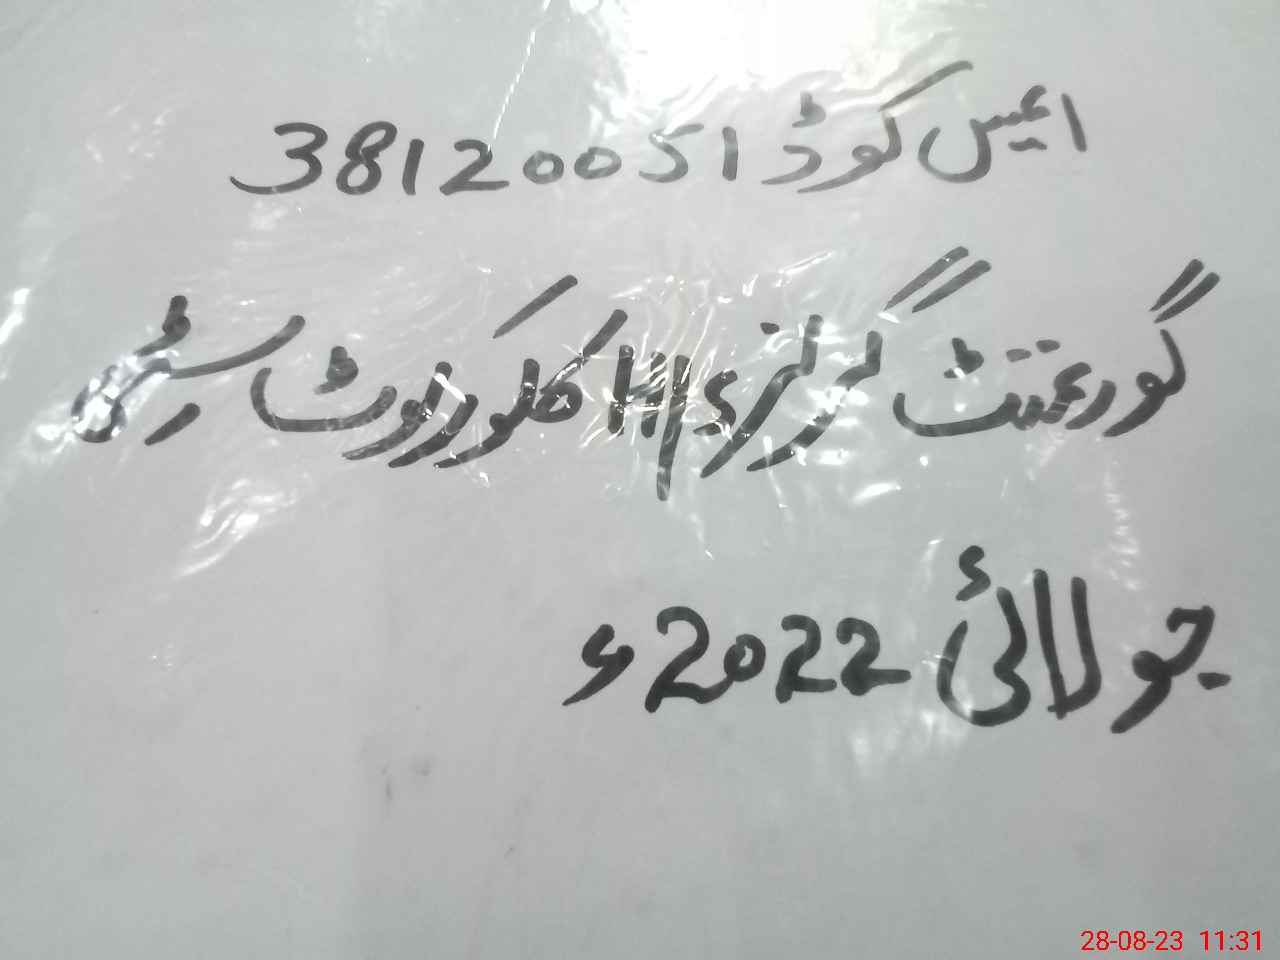 ایمیس کوڈ 38120051
گورنمنٹ گرلز ہائی سکول کوروٹانہ سٹی
جولائی 2022ء
28-08-23 11:31